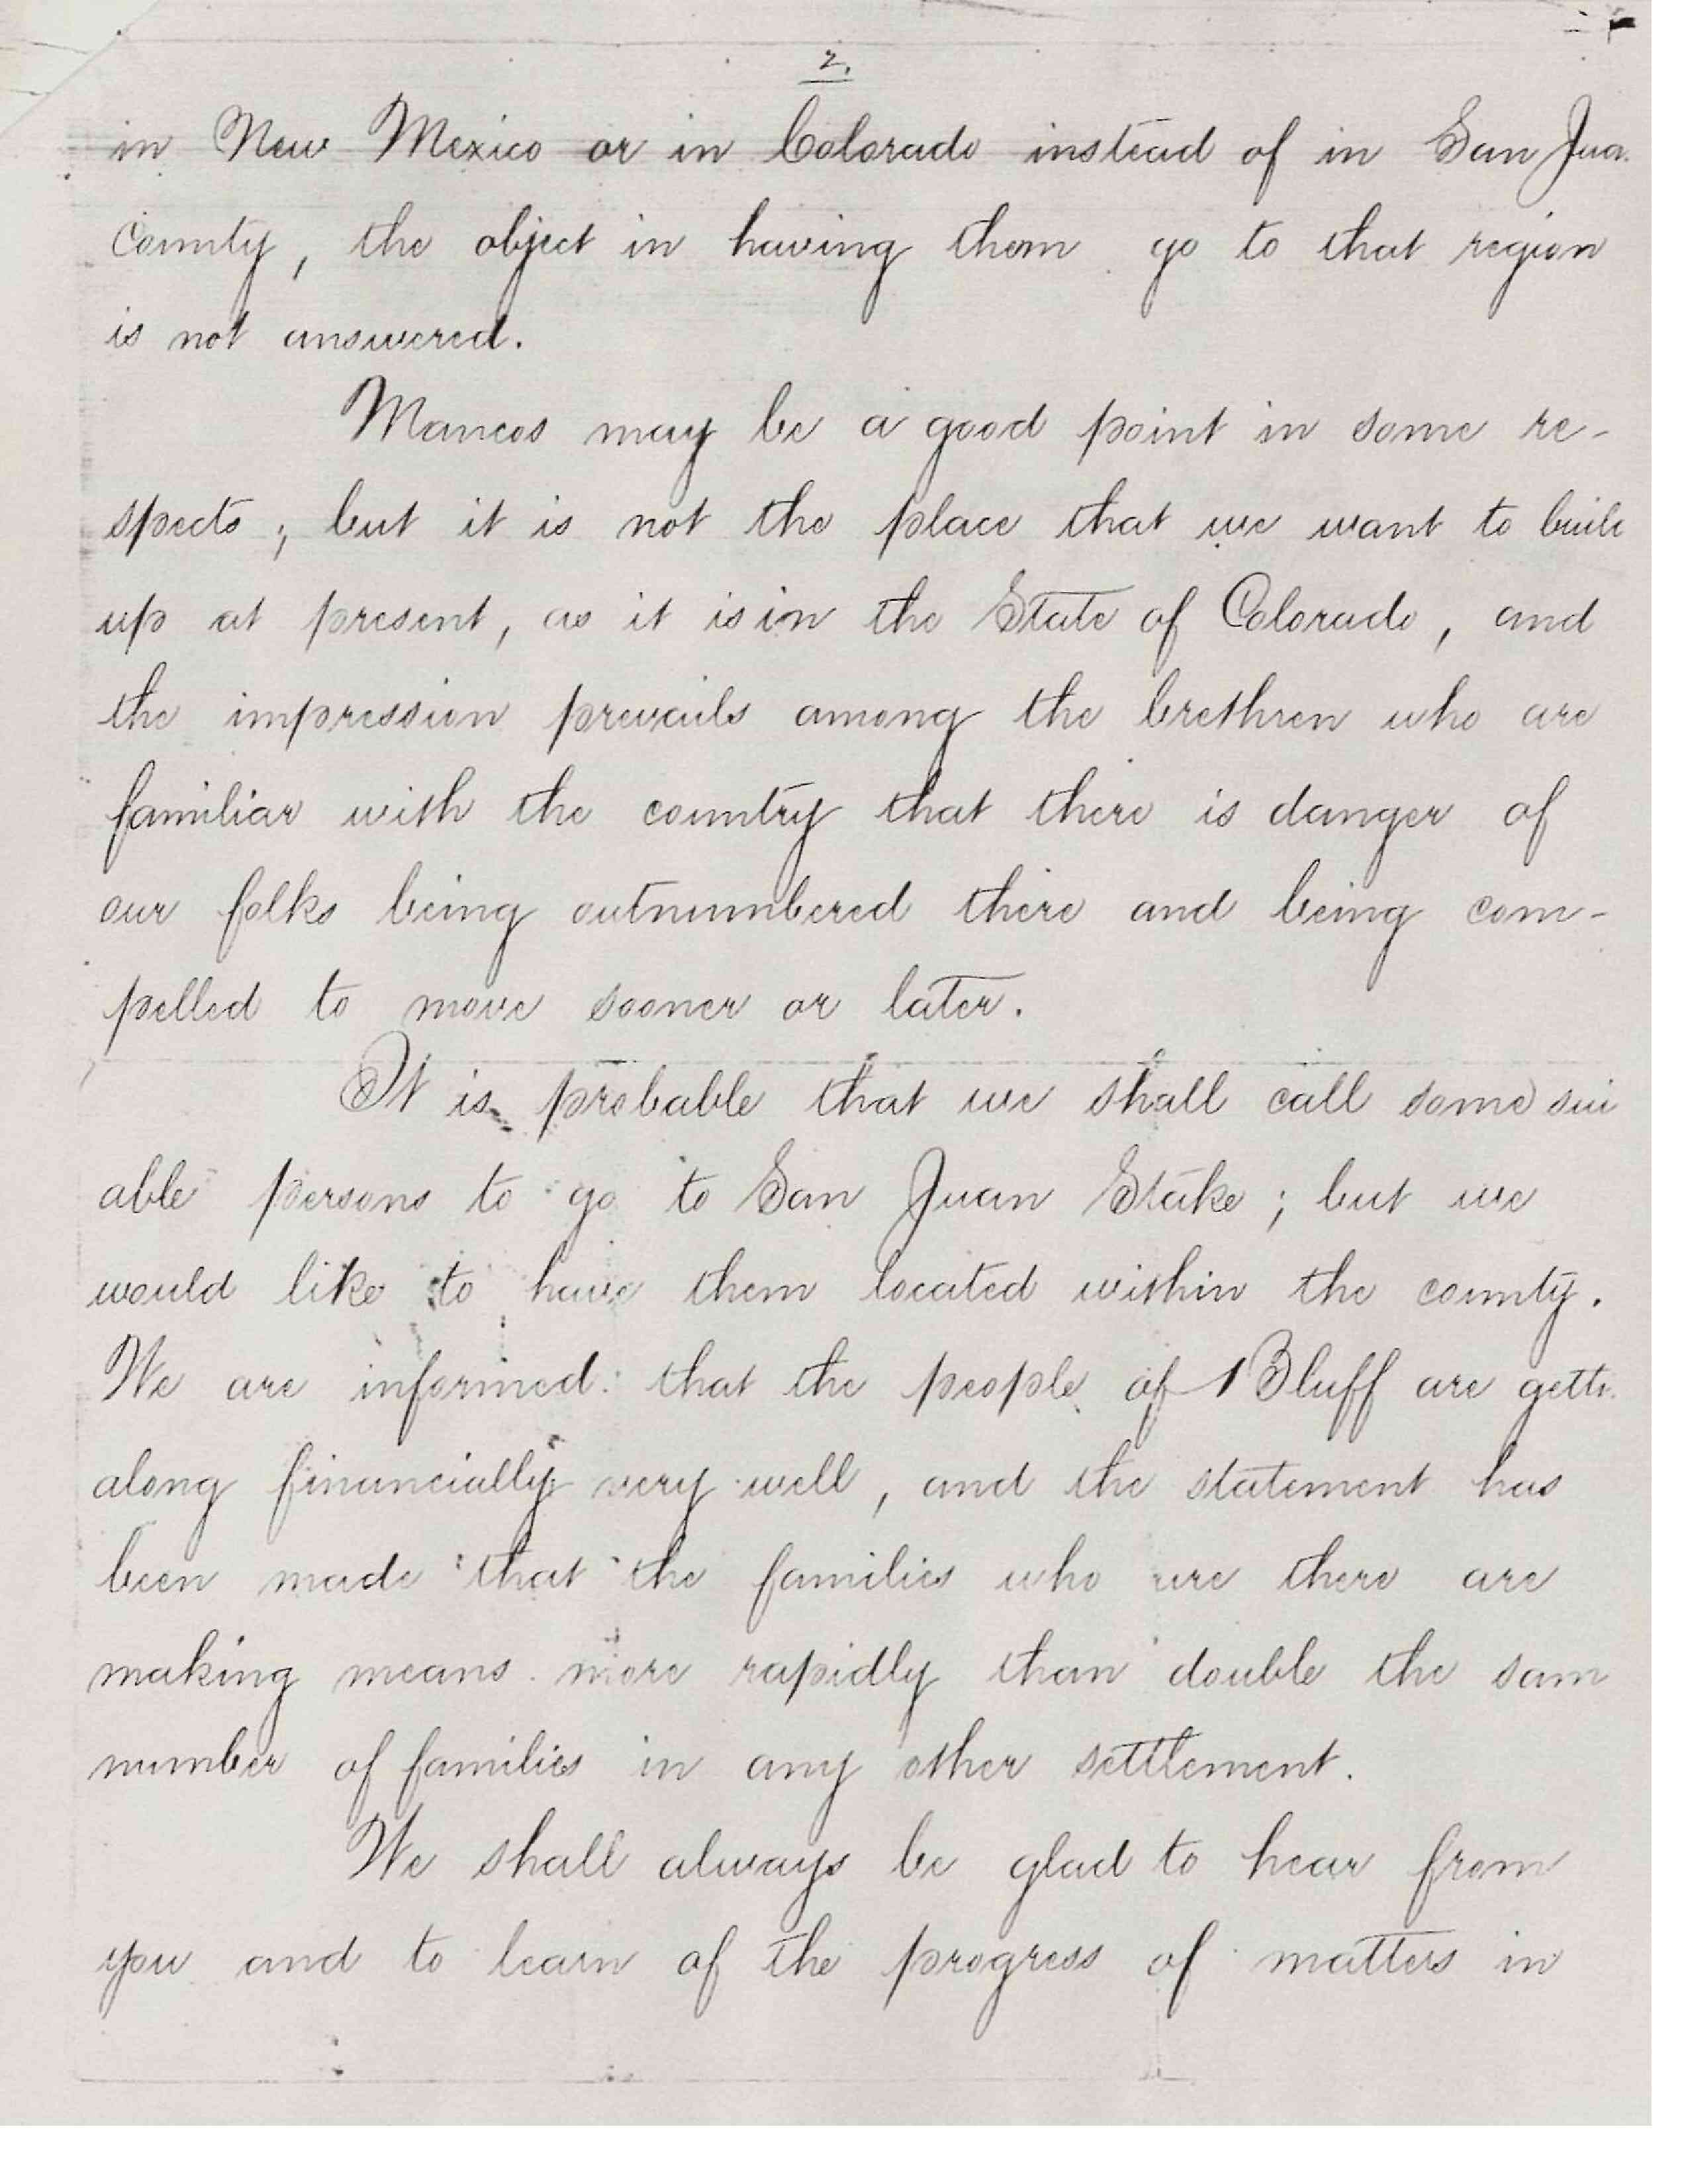 2.
in New Mexico or in Colorado instead of in San Jua
County, the object in having them go to that region
is not answered.
Mancos may be a good point in some re-
spects; but it is not the place that we want to buil
up at present, as it is in the State of Colorado, and
the impression prevails among the brethren who are
familiar with the country that there is danger of
our folks being outnumbered there and being com-
pelled to move sooner or later.
It is probable that we shall call some sui
able persons to go to San Juan Stake; but we
would like to have them located within the county.
We are informed that the people of Bluff are getti
along financially very well, and the statement has
been made that the families who are there are
making means more rapidly than double the sam
number of families in any other settlement.
We shall always be glad to hear from
you and to learn of the progress of matters in